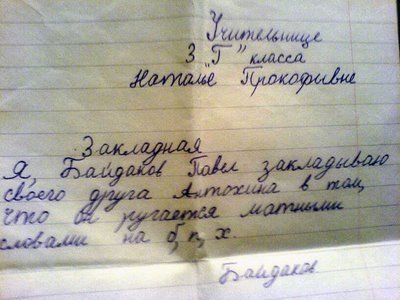 Учительнице
3 "Г" класса
Наталье Прокофьвне
Закладная
Я, Байдаков Павел закладываю
своего друга Алтохина в том,
что он ругается матными
словами на б, п, х.
Байдаков